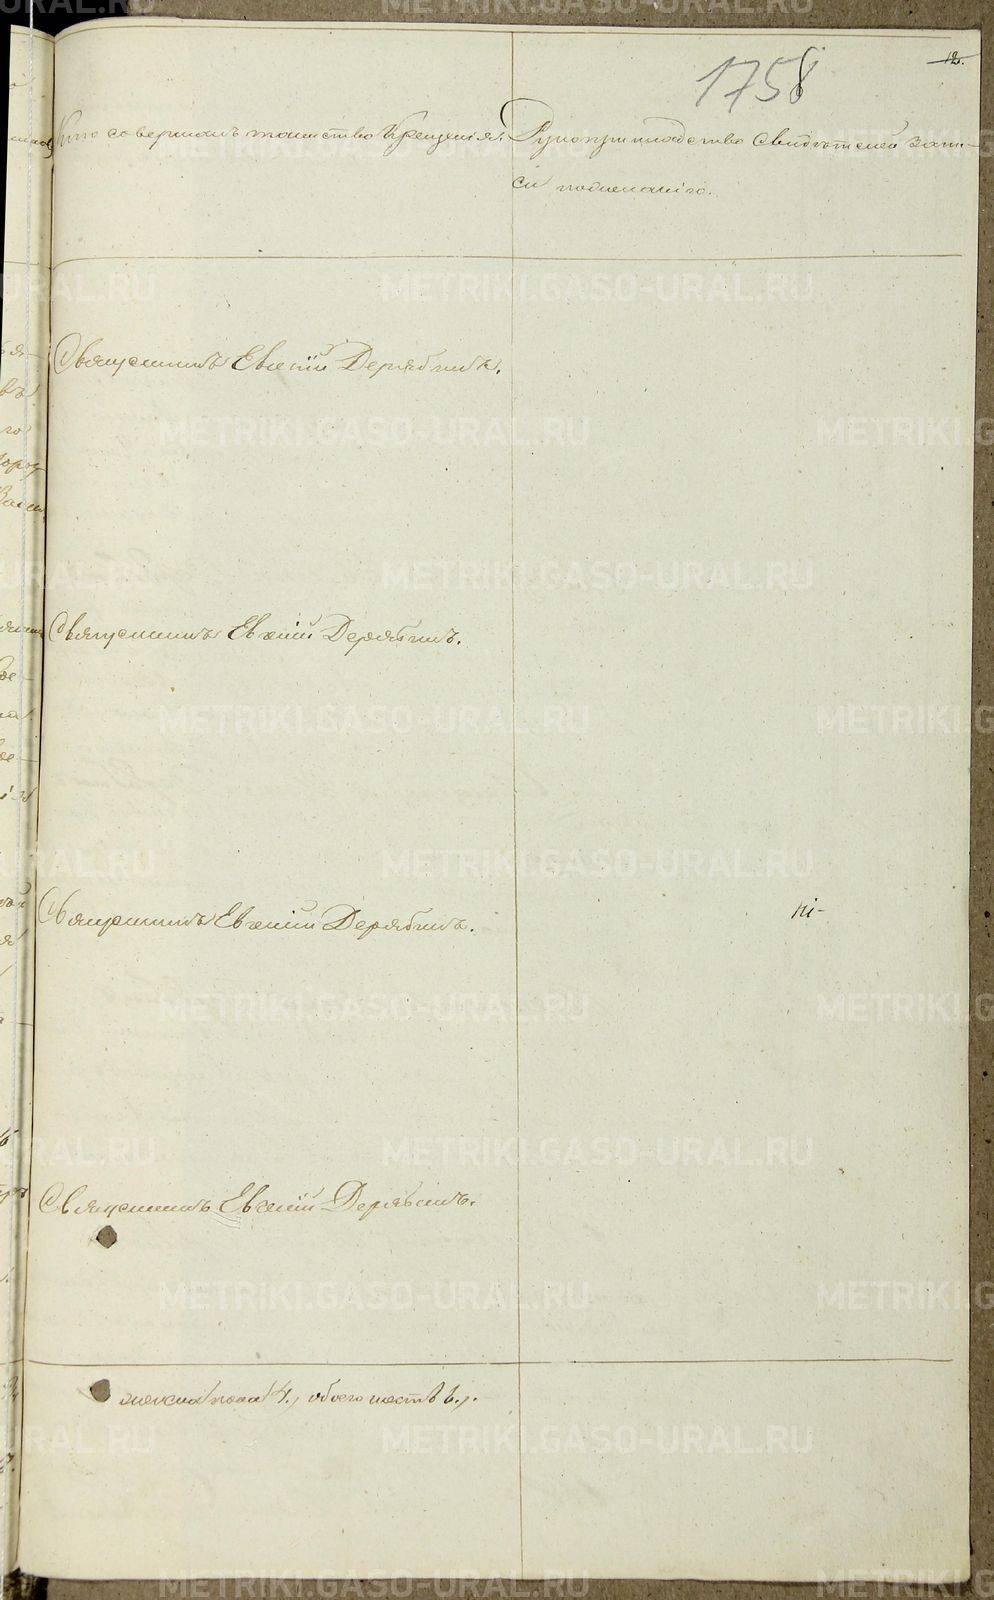 12.
1758
Кто совершалъ таинство Крещенія.
Рукоприкладство свидѣтелей запи-
си по желанію.
Священникъ Евгеній Дерябинъ.
Священникъ Евгеній Дерябинъ.
Священникъ Евгеній Дерябинъ.
Священникъ Евгеній Дерябинъ.
женска пола 4., обоего шесть 6.,.
METRIKI.GASO-URAL.RU